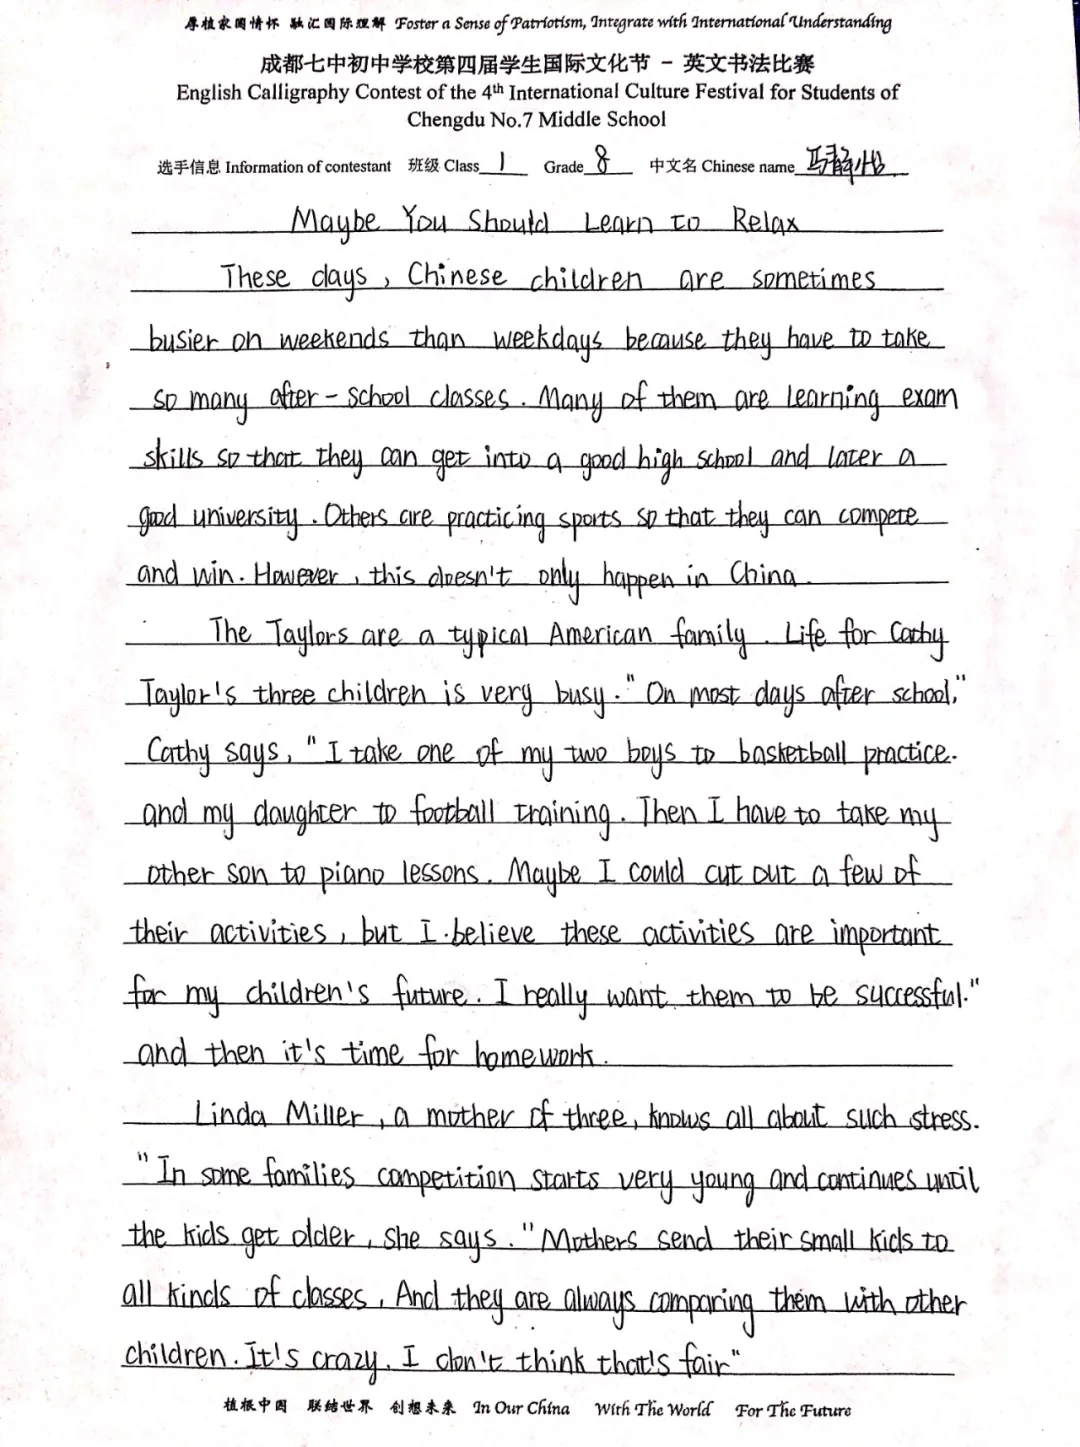 厚植家国情怀 融汇国际理解 Foster a Sense of Patriotism, Integrate with International Understanding
成都七中初中学校第四届学生国际文化节 - 英文书法比赛
English Calligraphy Contest of the 4th International Culture Festival for Students of
Chengdu No.7 Middle School
选手信息 Information of contestant 班级 Class 1 Grade 8 中文名 Chinese name 马静
Maybe You Should Learn to Relax
These days , Chinese children are sometimes
busier on weekends than weekdays because they have to take
so many after-school classes. Many of them are learning exam
skills so that they can get into a good high school and later a
good university. Others are practicing sports so that they can compete
and win. However, this doesn't only happen in China.
The Taylors are a typical American family. Life for Cathy
Taylor's three children is very busy. "On most days after school,"
Cathy says, "I take one of my two boys to basketball practice.
and my daughter to football training. Then I have to take my
other son to piano lessons. Maybe I could cut out a few of
their activities, but I believe these activities are important
for my children's future. I really want them to be successful."
and then it's time for homework.
Linda Miller, a mother of three, knows all about such stress.
"In some families competition starts very young and continues until
the kids get older, she says. "Mothers send their small kids to
all kinds of classes, And they are always comparing them with other
children. It's crazy. I don't think that's fair"
植根中国 联结世界 创想未来 In Our China With The World For The Future